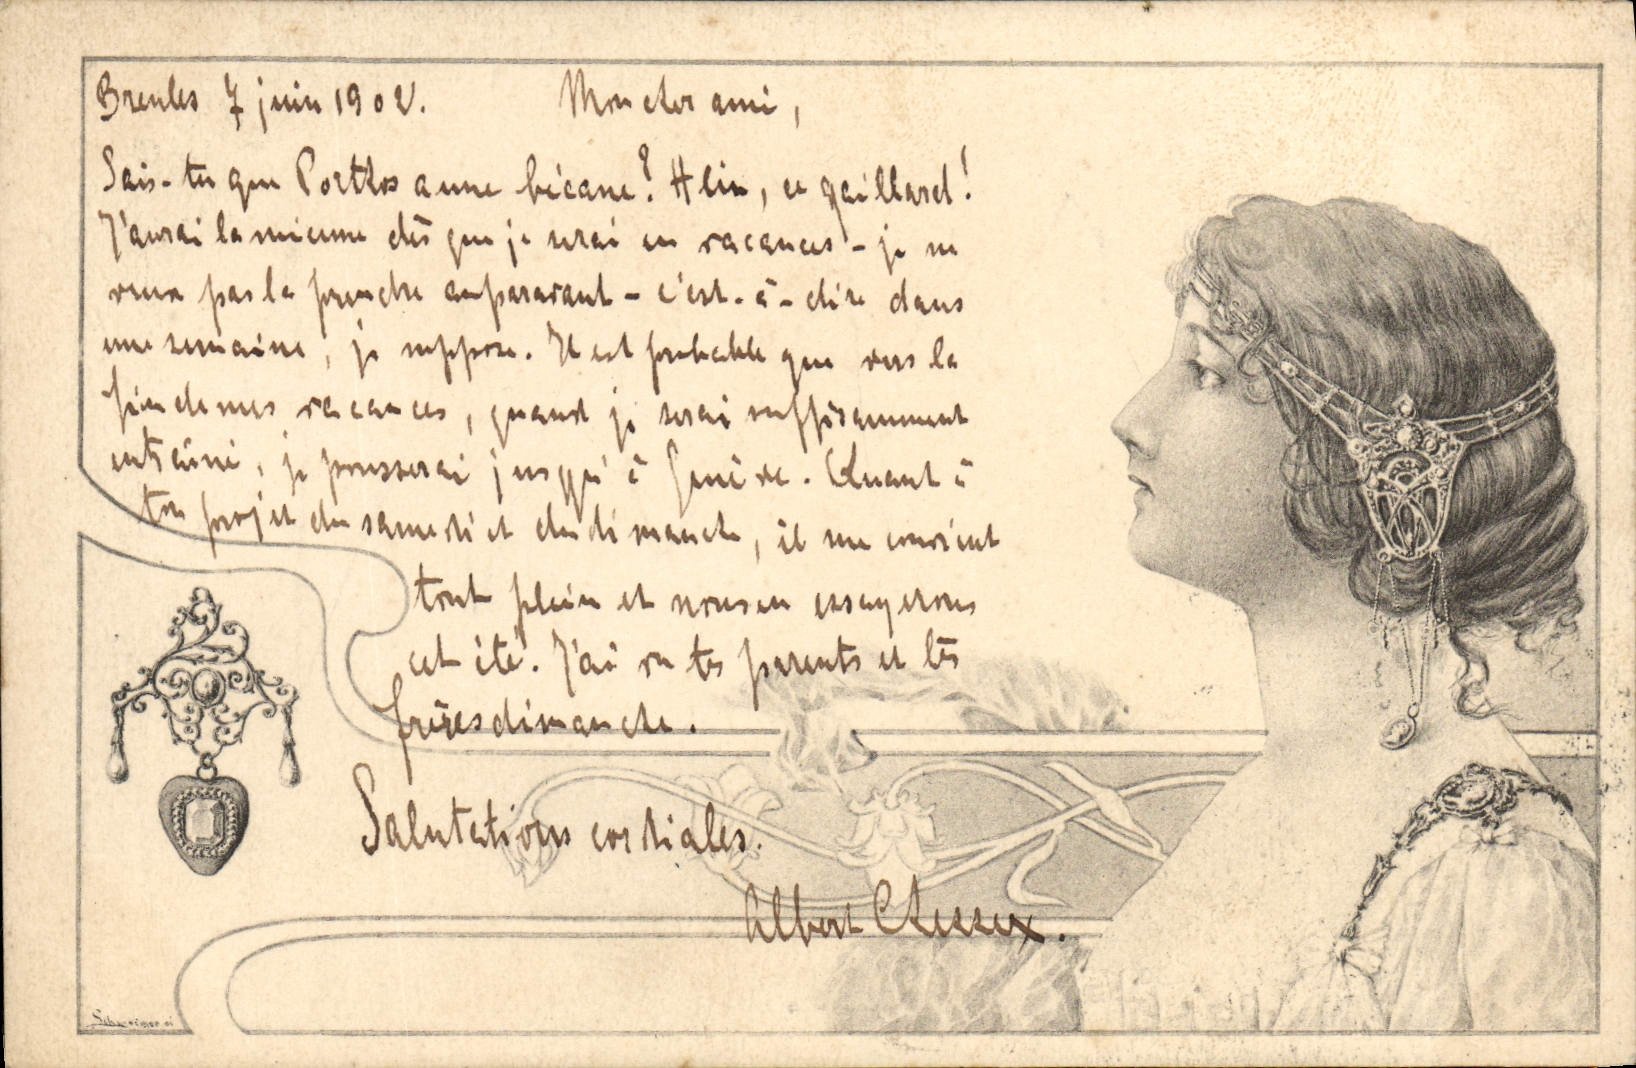 Brenles 7 juin 1902. Mon cher ami,
Sais-tu que Porthos a une bécane? Hein, ce gaillard!
J'aurai la mienne dès que je serai en vacances - je ne
veux pas la prendre auparavant - c'est-à-dire dans
une semaine, je suppose. Il est probable que vers la
fin de mes vacances, quand je serai suffisamment
entraîné, je pousserai jusqu'à Genève. Quant à
ton projet du samedi et du dimanche, il me convient
tout plein et nous en essayerons
cet été. J'ai vu tes parents et tes
frères dimanche.
Salutations cordiales.
Albert Chessex.